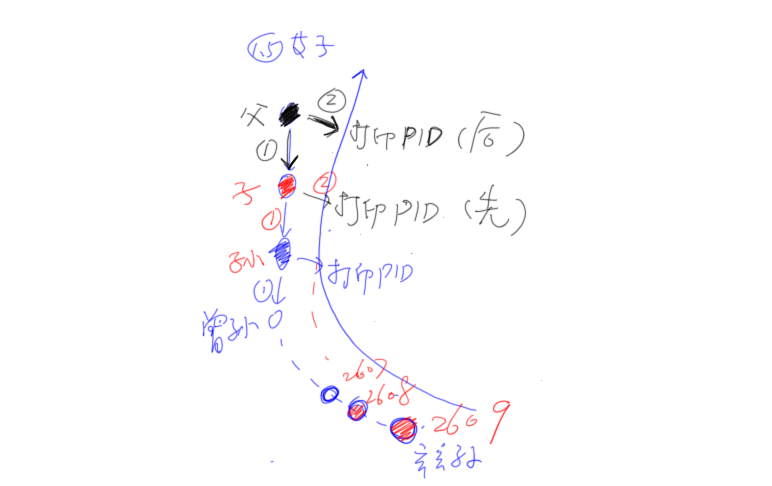 1.5 父子
②
父
打印PID(后)
①
子
②
打印PID(先)
①
孙
打印PID
①
曾孙
2607
2608
2609
玄孙